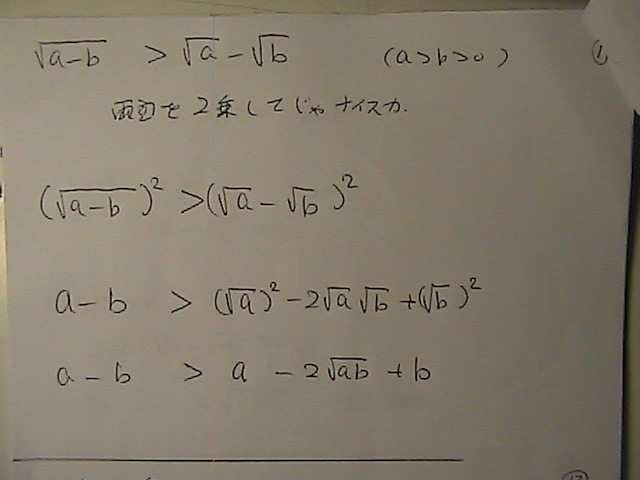 √(a-b) > √a - √b (a>b>0) ①
両辺を2乗してじゃナイスカ.
(√(a-b))² > (√a - √b)²
a-b > (√a)² - 2√a√b + (√b)²
a-b > a - 2√(ab) + b